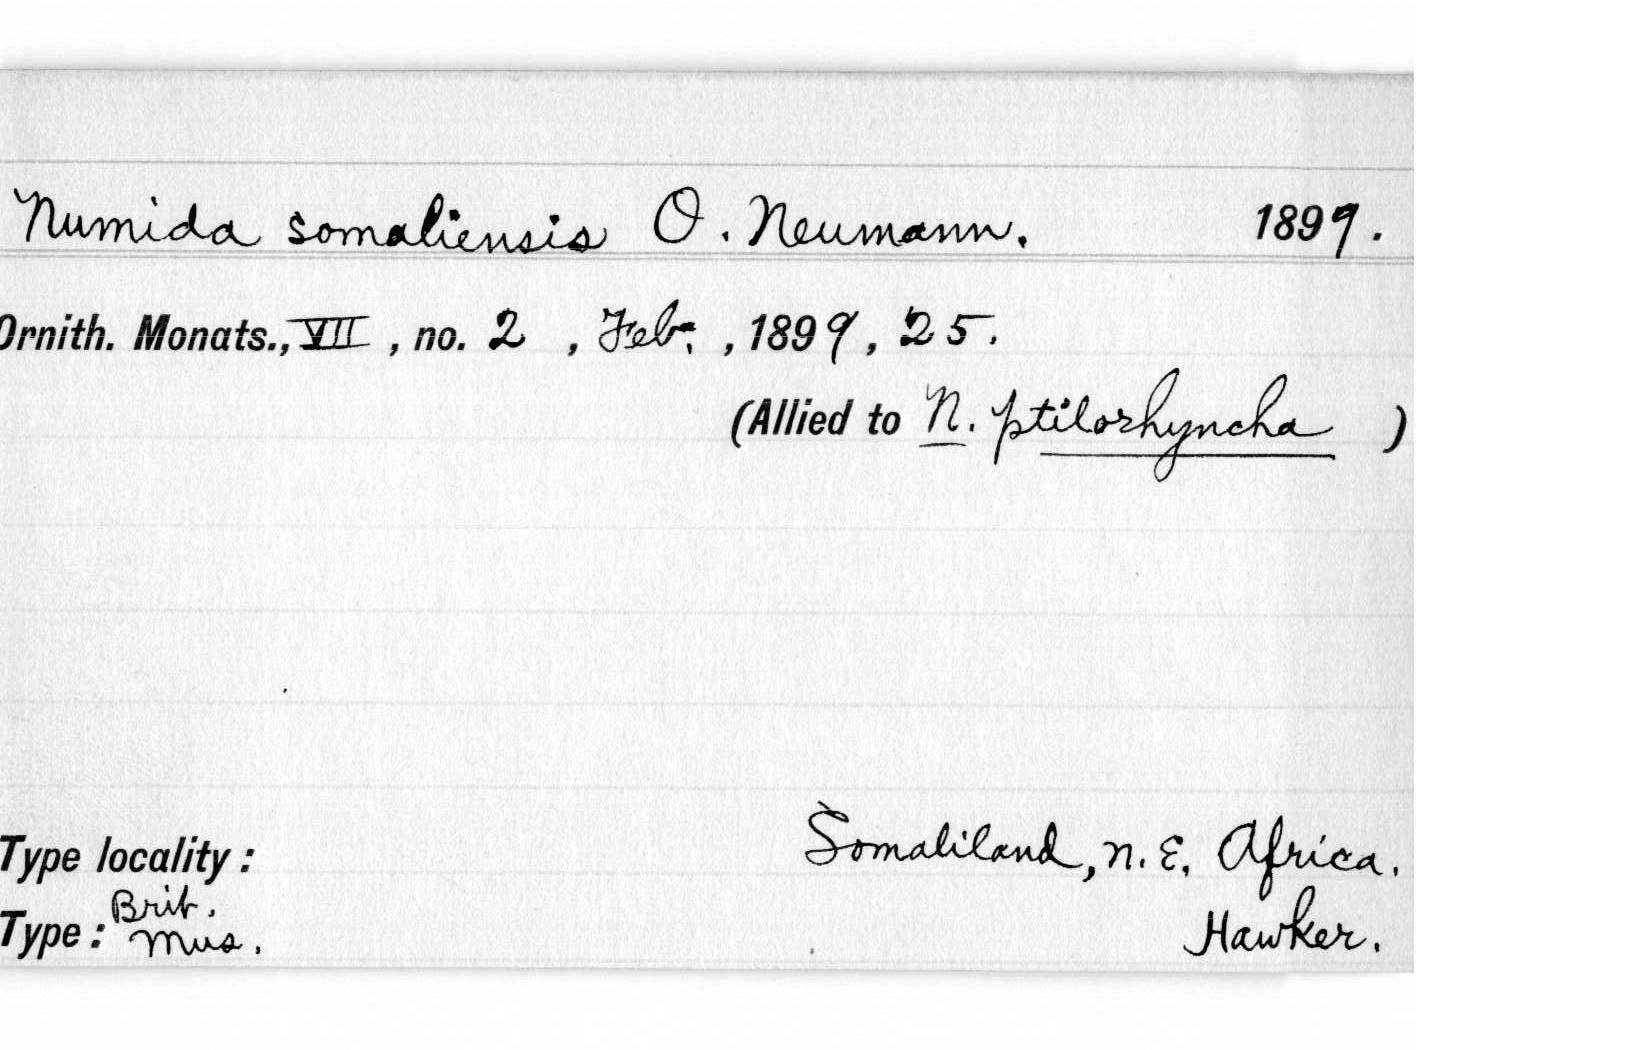 Numida somaliensis O. Neumann. 1899.
Ornith. Monats., VII, no. 2, Feb., 1899, 25.
(Allied to N. ptilorhyncha)
Type locality: Somaliland, N.E. Africa.
Type: Brit. Mus. Hawker.